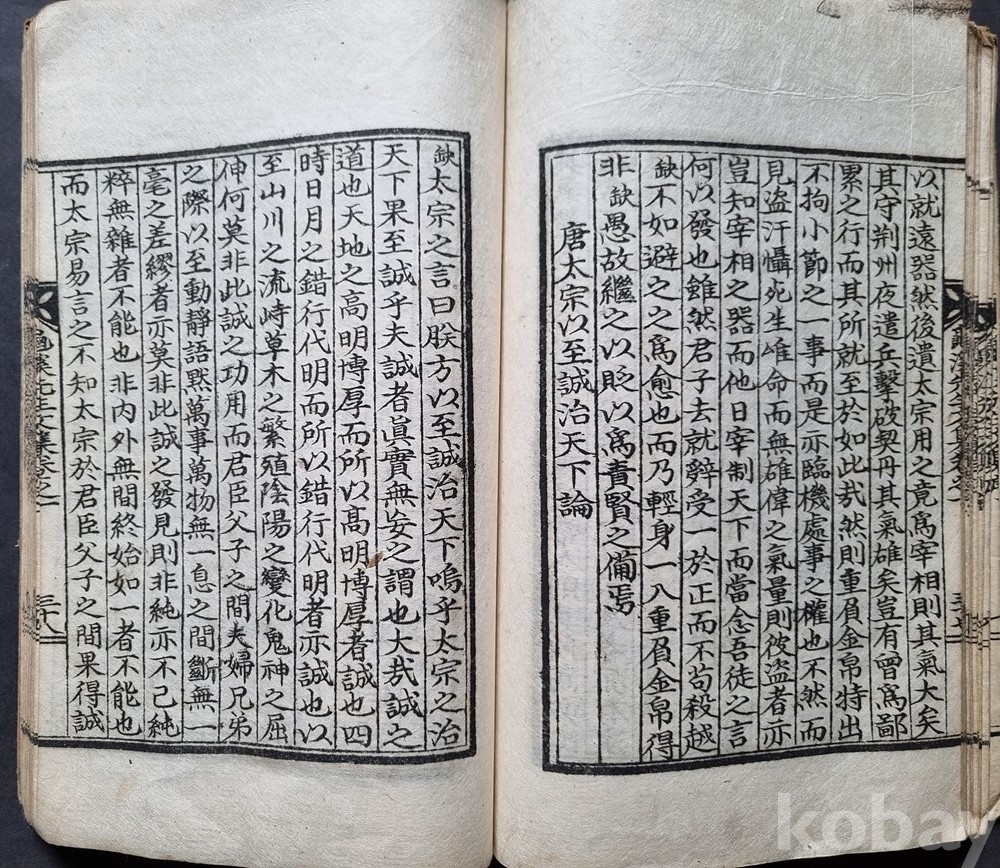 以就遠器然後遺太宗用之竟爲宰相則其氣大矣
其守荆州夜遣兵擊破契丹其氣雄矣豈有曾爲鄙
累之行而其所就至於如此㢤然則重負金帛特出
不拘小節之一事而是亦臨機處事之權也不然而
見盗汗懾死生唯命而無雄偉之氣量則彼盗者亦
豈知宰相之器而他日宰制天下而當念吾徒之言
何以發也雖然君子去就辭受一於正而不苟殺越
缺不如避之之爲愈也而乃輕身一入重負金帛得
非缺愚故繼之以貶以爲責賢之備焉
唐太宗以至誠治天下論
缺太宗之言曰朕方以至誠治天下嗚乎太宗之治
天下果至誠乎夫誠者眞實無妄之謂也大㢤誠之
道也天地之高明博厚而所以高明博厚者誠也四
時日月之錯行代明而所以錯行代明者亦誠也以
至山川之流峙草木之繁殖陰陽之變化鬼神之屈
伸何莫非此誠之功用而君臣父子之間夫婦兄弟
之際以至動靜語黙萬事萬物無一息之間斷無一
毫之差繆者亦莫非此誠之發見則非純亦不已純
粹無雜者不能也非内外無間終始如一者不能也
而太宗易言之不知太宗於君臣父子之間果得誠
先生文集卷之一
三十八
kobay